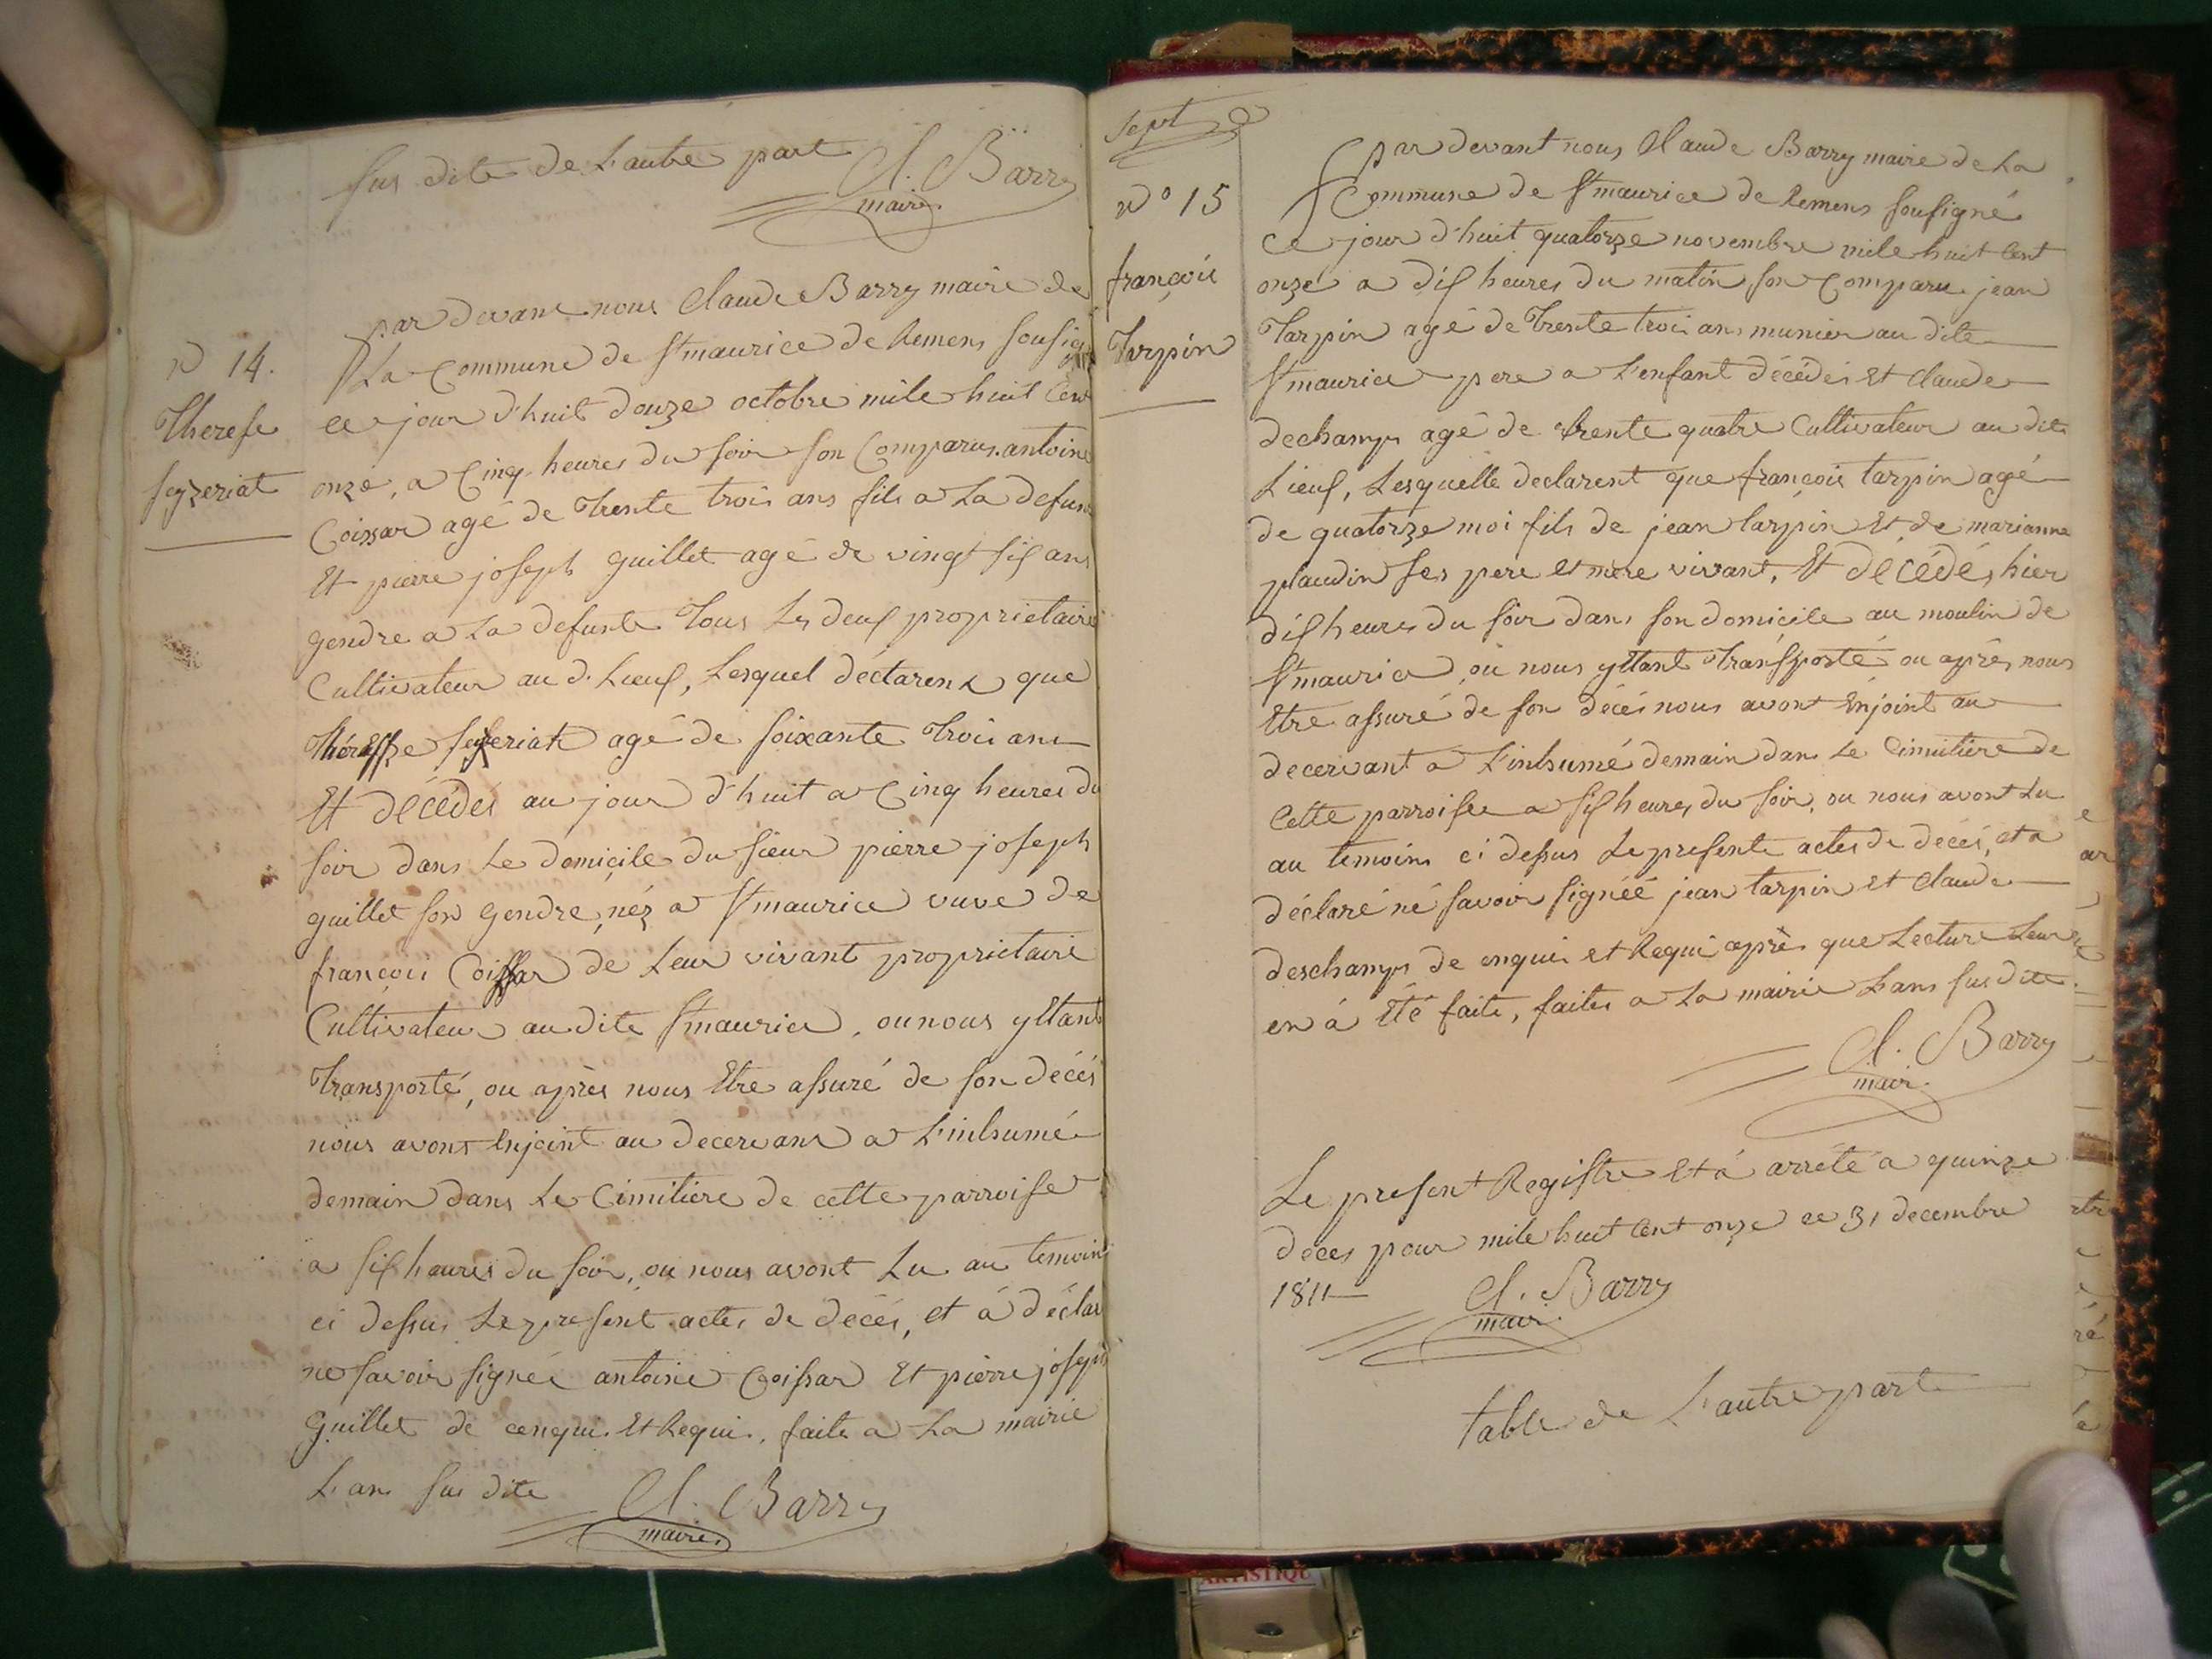 sus dite de L'autre part Cl. Barry
maire
N 14.
Therese
seyzeriat
par devant nous Claude Barry maire de
La Commune de St maurice de Remens sousig
ce jour d'huit douze octobre mile huit Cent
onze, a Cinq heures du soir son Comparus antoine
Coissar agé de Trente trois ans fils a La defun
Et pierre joseph guillet agé de vingt six ans
gendre a La defunte Tous Les deux proprietaire
Cultivateur au d. Lieux, Lesquel déclarent que
agé de soixante Trois ans
Et décédés au jour d'huit a Cinq heures du
soir dans Le domicile du sieur pierre joseph
guillet son gendre, néz a St maurice vuve de
françois Coissar de Leur vivant proprietaire
Cultivateur au dite St maurice, ou nous y Etant
Transporté, ou après nous Etre assuré de son décés
nous avont Enjoint au decervant a L'inhumé
demain dans Le Cimitiere de cette parroisse
a six heures du soir, ou nous avont Lu au temoin
ci dessus Le present actes de décés, et à déclar
ne savoir signée antoine Coissar Et pierre joseph
Guillet de cenqui Et Requi, faite a La mairie
L'ans sus dite Cl. Barry
maire
Sept
No 15
françois
Tarpin
Par devant nous Claude Barry maire de La
Commune de St maurice de Remens sousigné
Ce jour d'huit quatorze novembre mile huit Cent
onze a dix heures du matin son Comparu jean
Tarpin agé de Trente trois ans munier au dite
St maurice pere a L'enfant décédés Et Claude
dechamps agé de trente quatre Cultivateur au dite
Lieux, Lesquelle declarent que françois tarpin agé
de quatorze moi fils de jean tarpin Et de marianne
plaudin ses pere et mere vivant, Et décédés hier
dix heures du soir dans son domicile au moulin de
St maurice, ou nous y Etant Transporté ou après nous
Etre assuré de son décés nous avont Enjoint au
decervant a L'inhumé demain dans Le Cimitière de
Cette parroisse a six heures du soir, ou nous avont Lu
au temoins ci dessus Le presente actes de décés, et a
déclaré né savoir signéé jean tarpin et Claude
deschamps de enquis et Requi après que Lecture Leur
en à Eté faite, faites a La mairie L'ans sus dite.
Cl. Barry
mair
Le present Registre Et à arrété a quinze
déces pour mile huit Cent onze ce 31 decembre
1811 Cl. Barry
mair
table de L'autre part
ARTISTIQU